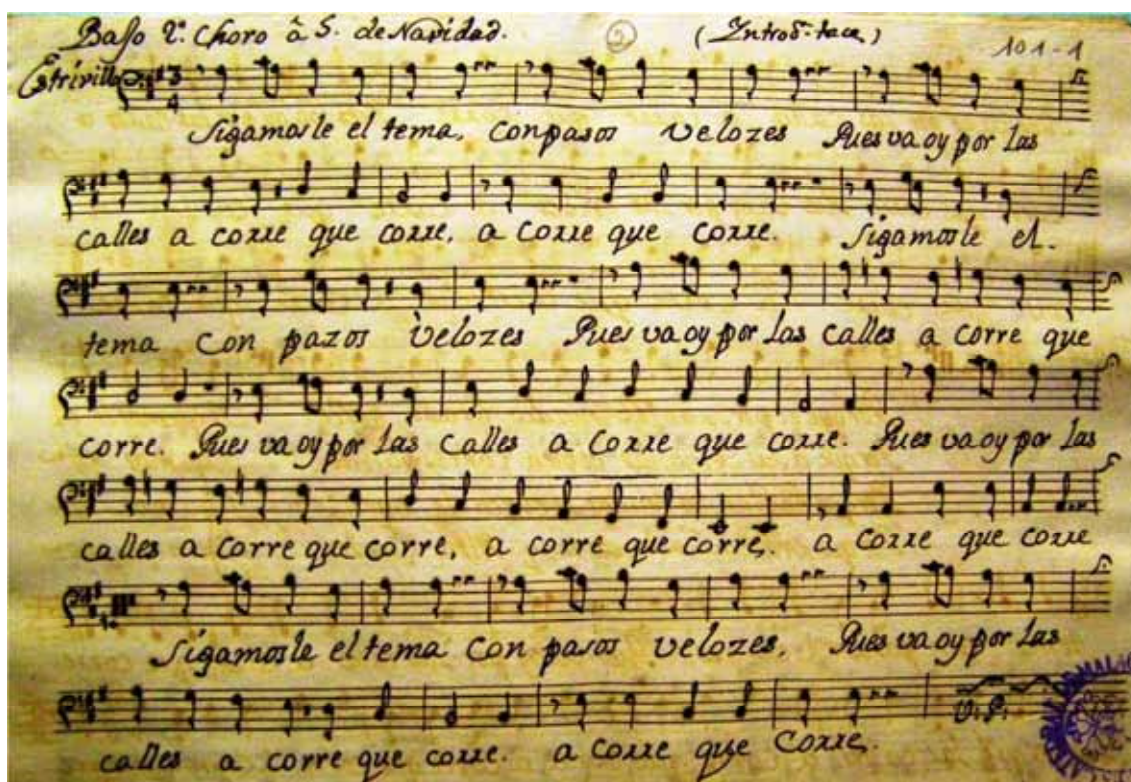 Baſso 2º. Choro â S. de Navidad. 2 (Introdn. tace) 101-1
Estrivillo 3 4
Sigamosle el tema, con pasos velozes Pues va oy por las
calles a corre que corre, a corre que corre. Sigamosle el.
tema Con pazos velozes Pues va oy por las calles a corre que
corre. Pues va oy por las calles a corre que corre. Pues va oy por las
calles a corre que corre, a corre que corre, a corre que corre
Sigamosle el tema Con pasos velozes, Pues va oy por las
V. P.
calles a corre que corre. a corre que Corre.